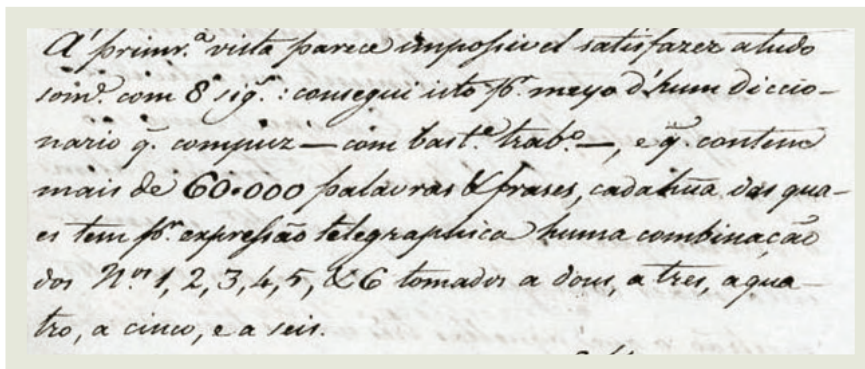 A' primr.ª vista parece impossivel satisfazer a tudo
som.e com 8 sig.s: consegui isto p.r meyo d'hum diccio-
nario q. compuz — com bast.e trab.o —, e q̃. contem
mais de 60.000 palavras & frases, cada hũa das qua-
es tem p.r expressão telegraphica huma combinação
dos N.os 1, 2, 3, 4, 5, & 6 tomados a dous, a tres, a qua-
tro, a cinco, e a seis.